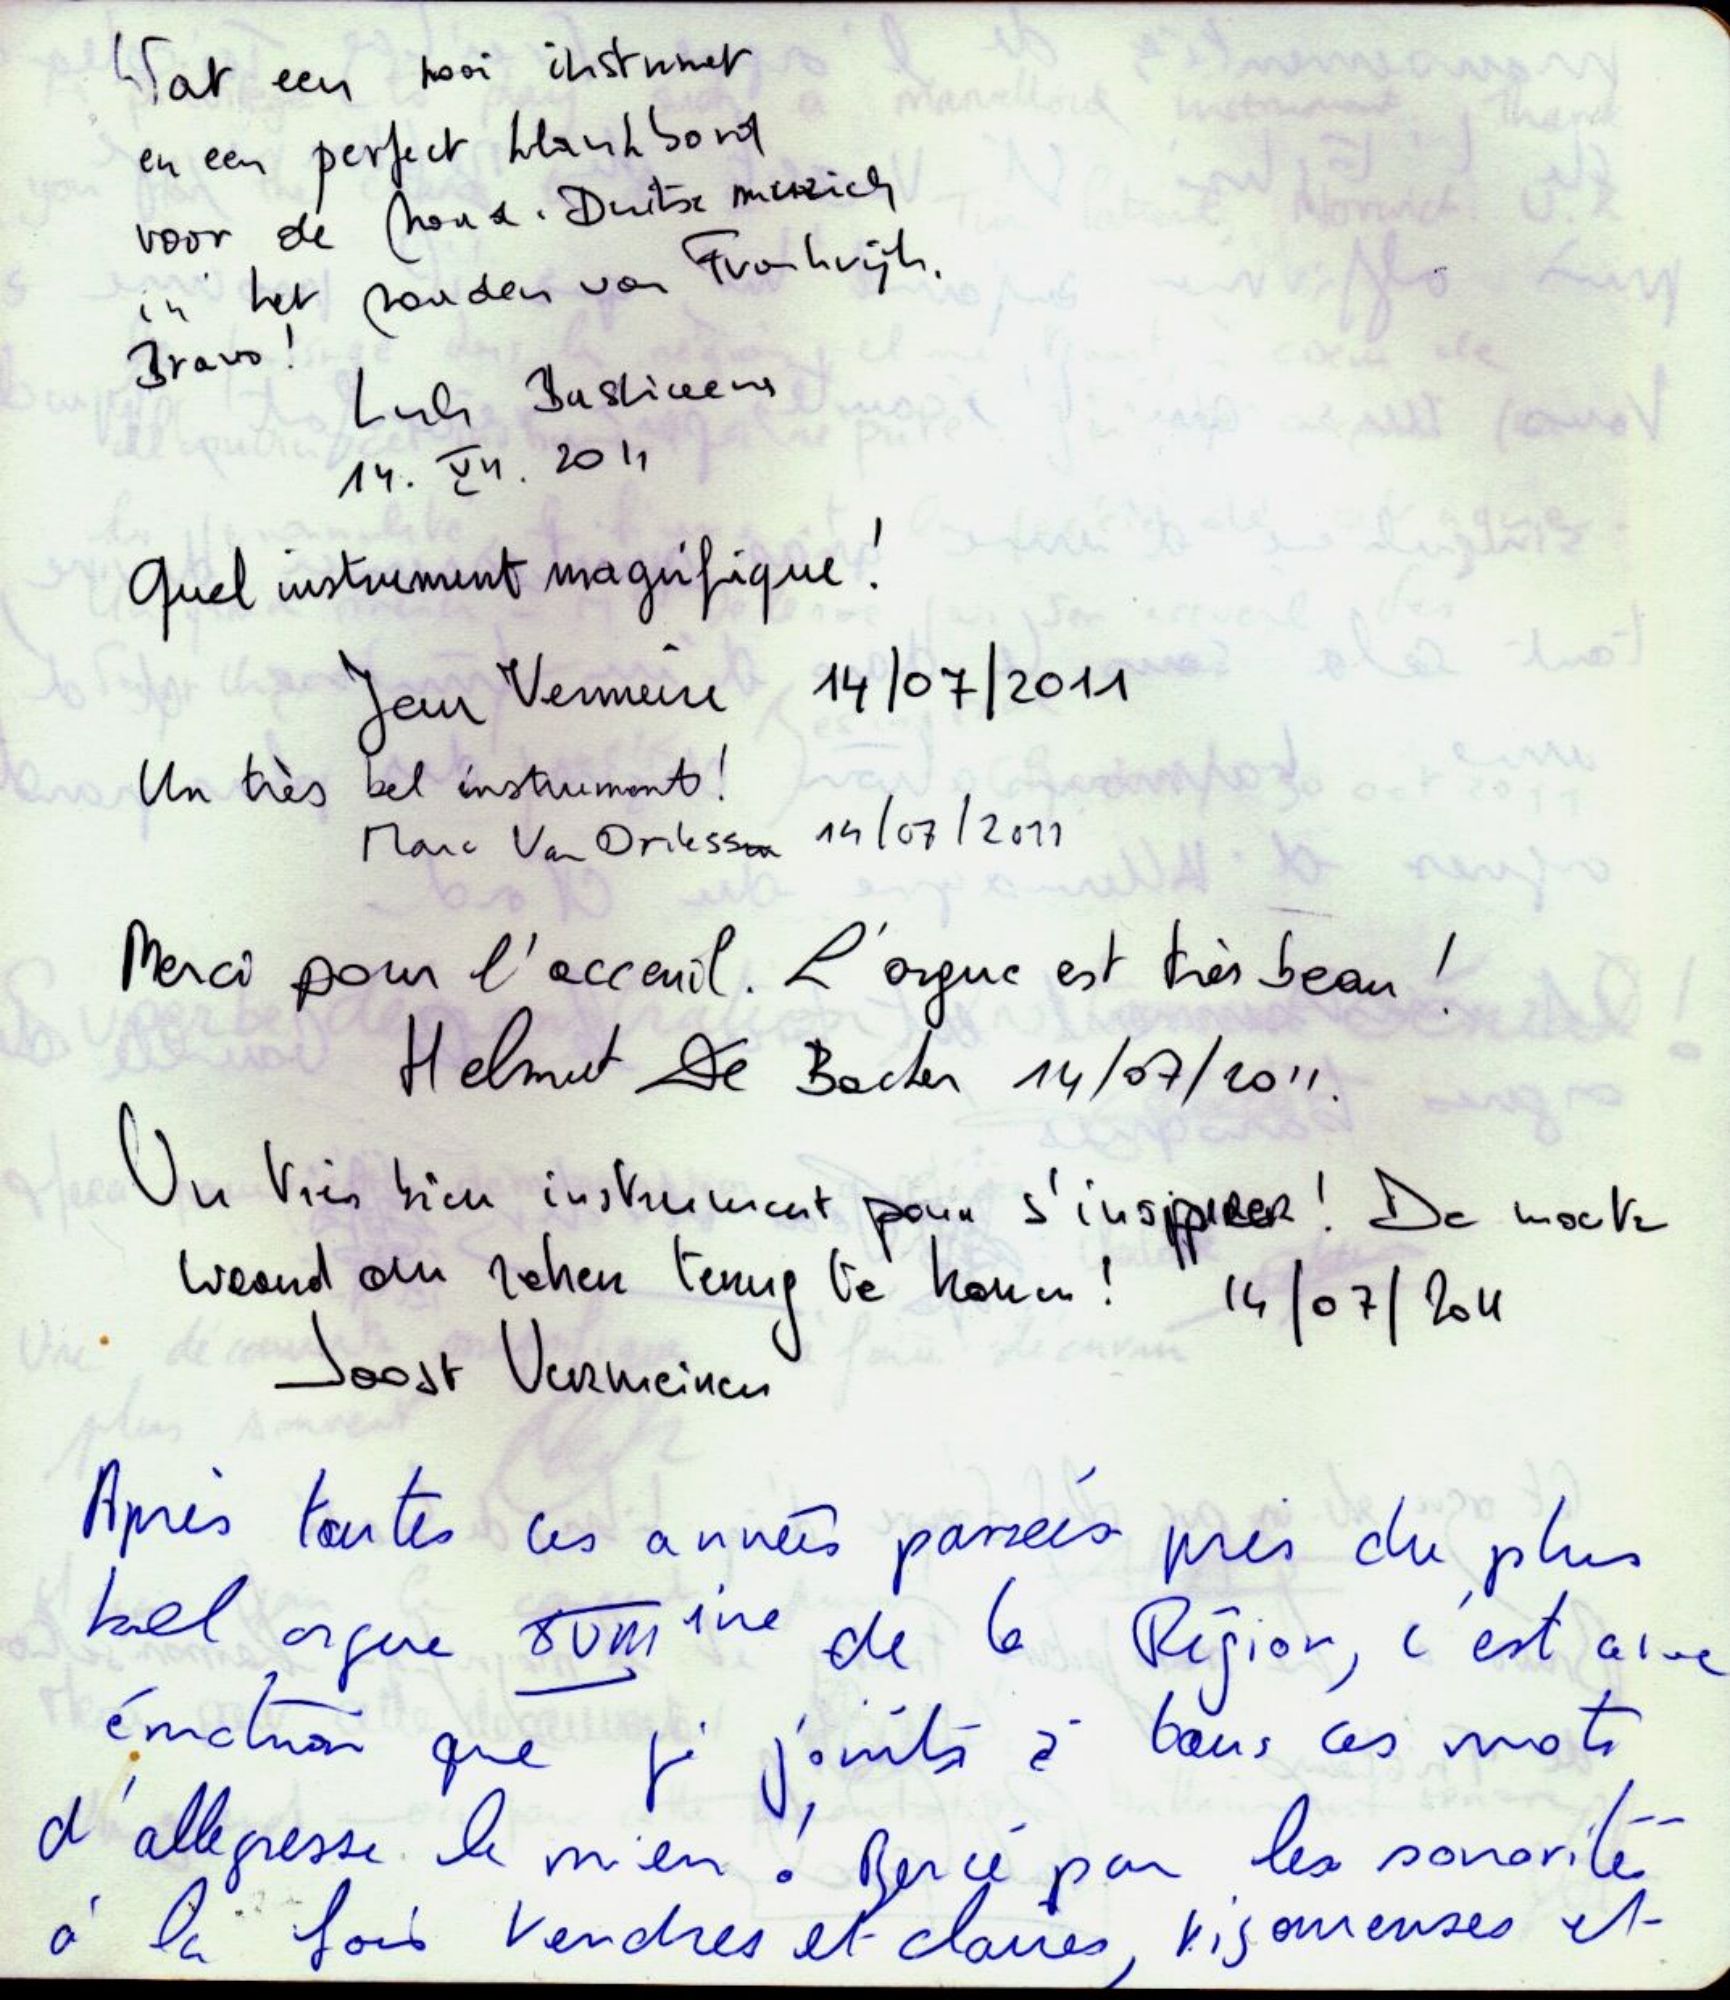 Wat een mooi instrument
en een perfect klankbord
voor de Duitse muziek
in het zuiden van Frankrijk.
Bravo!
Luk Bastiaens
14. VII. 2011
Quel instrument magnifique!
Jean Vermeire 14/07/2011
Un très bel instrument!
Marc Van Driessen 14/07/2011
Merci pour l'acceuil. L'orgue est très beau!
Helmut De Backer 14/07/2011.
Un très bien instrument pour s'inspirer! De moeite
weerd om zeker terug te komen! 14/07/2011
Joost Vermeiren
Après toutes ces années passées près du plus
bel orgue XVIII ine de la Région, c'est avec
émotion que je joints à tous ces mots
d'allegresse le mien! Bercé par les sonorités
à la fois tendres et claires, vigoureuses et